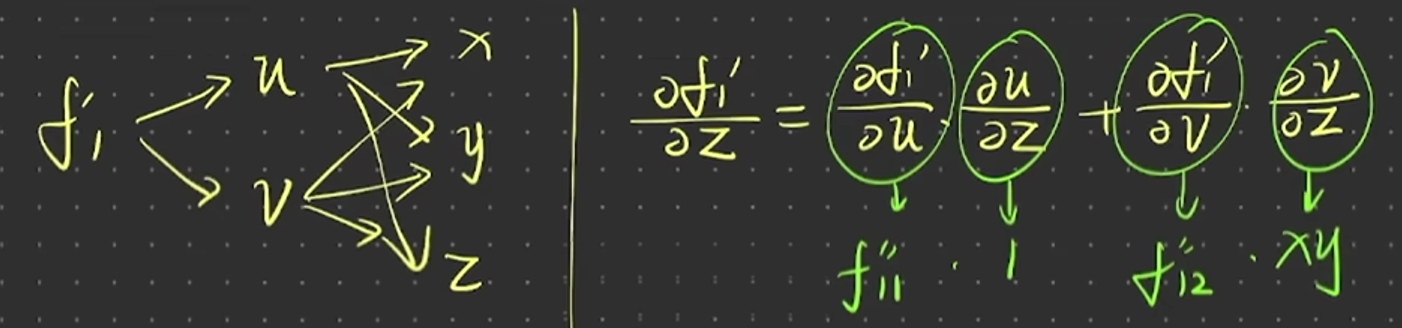 f₁′ u v x y z
∂f₁′/∂z = ∂f₁′/∂u · ∂u/∂z + ∂f₁′/∂v · ∂v/∂z
f₁₁″ · 1 f₁₂″ · xy